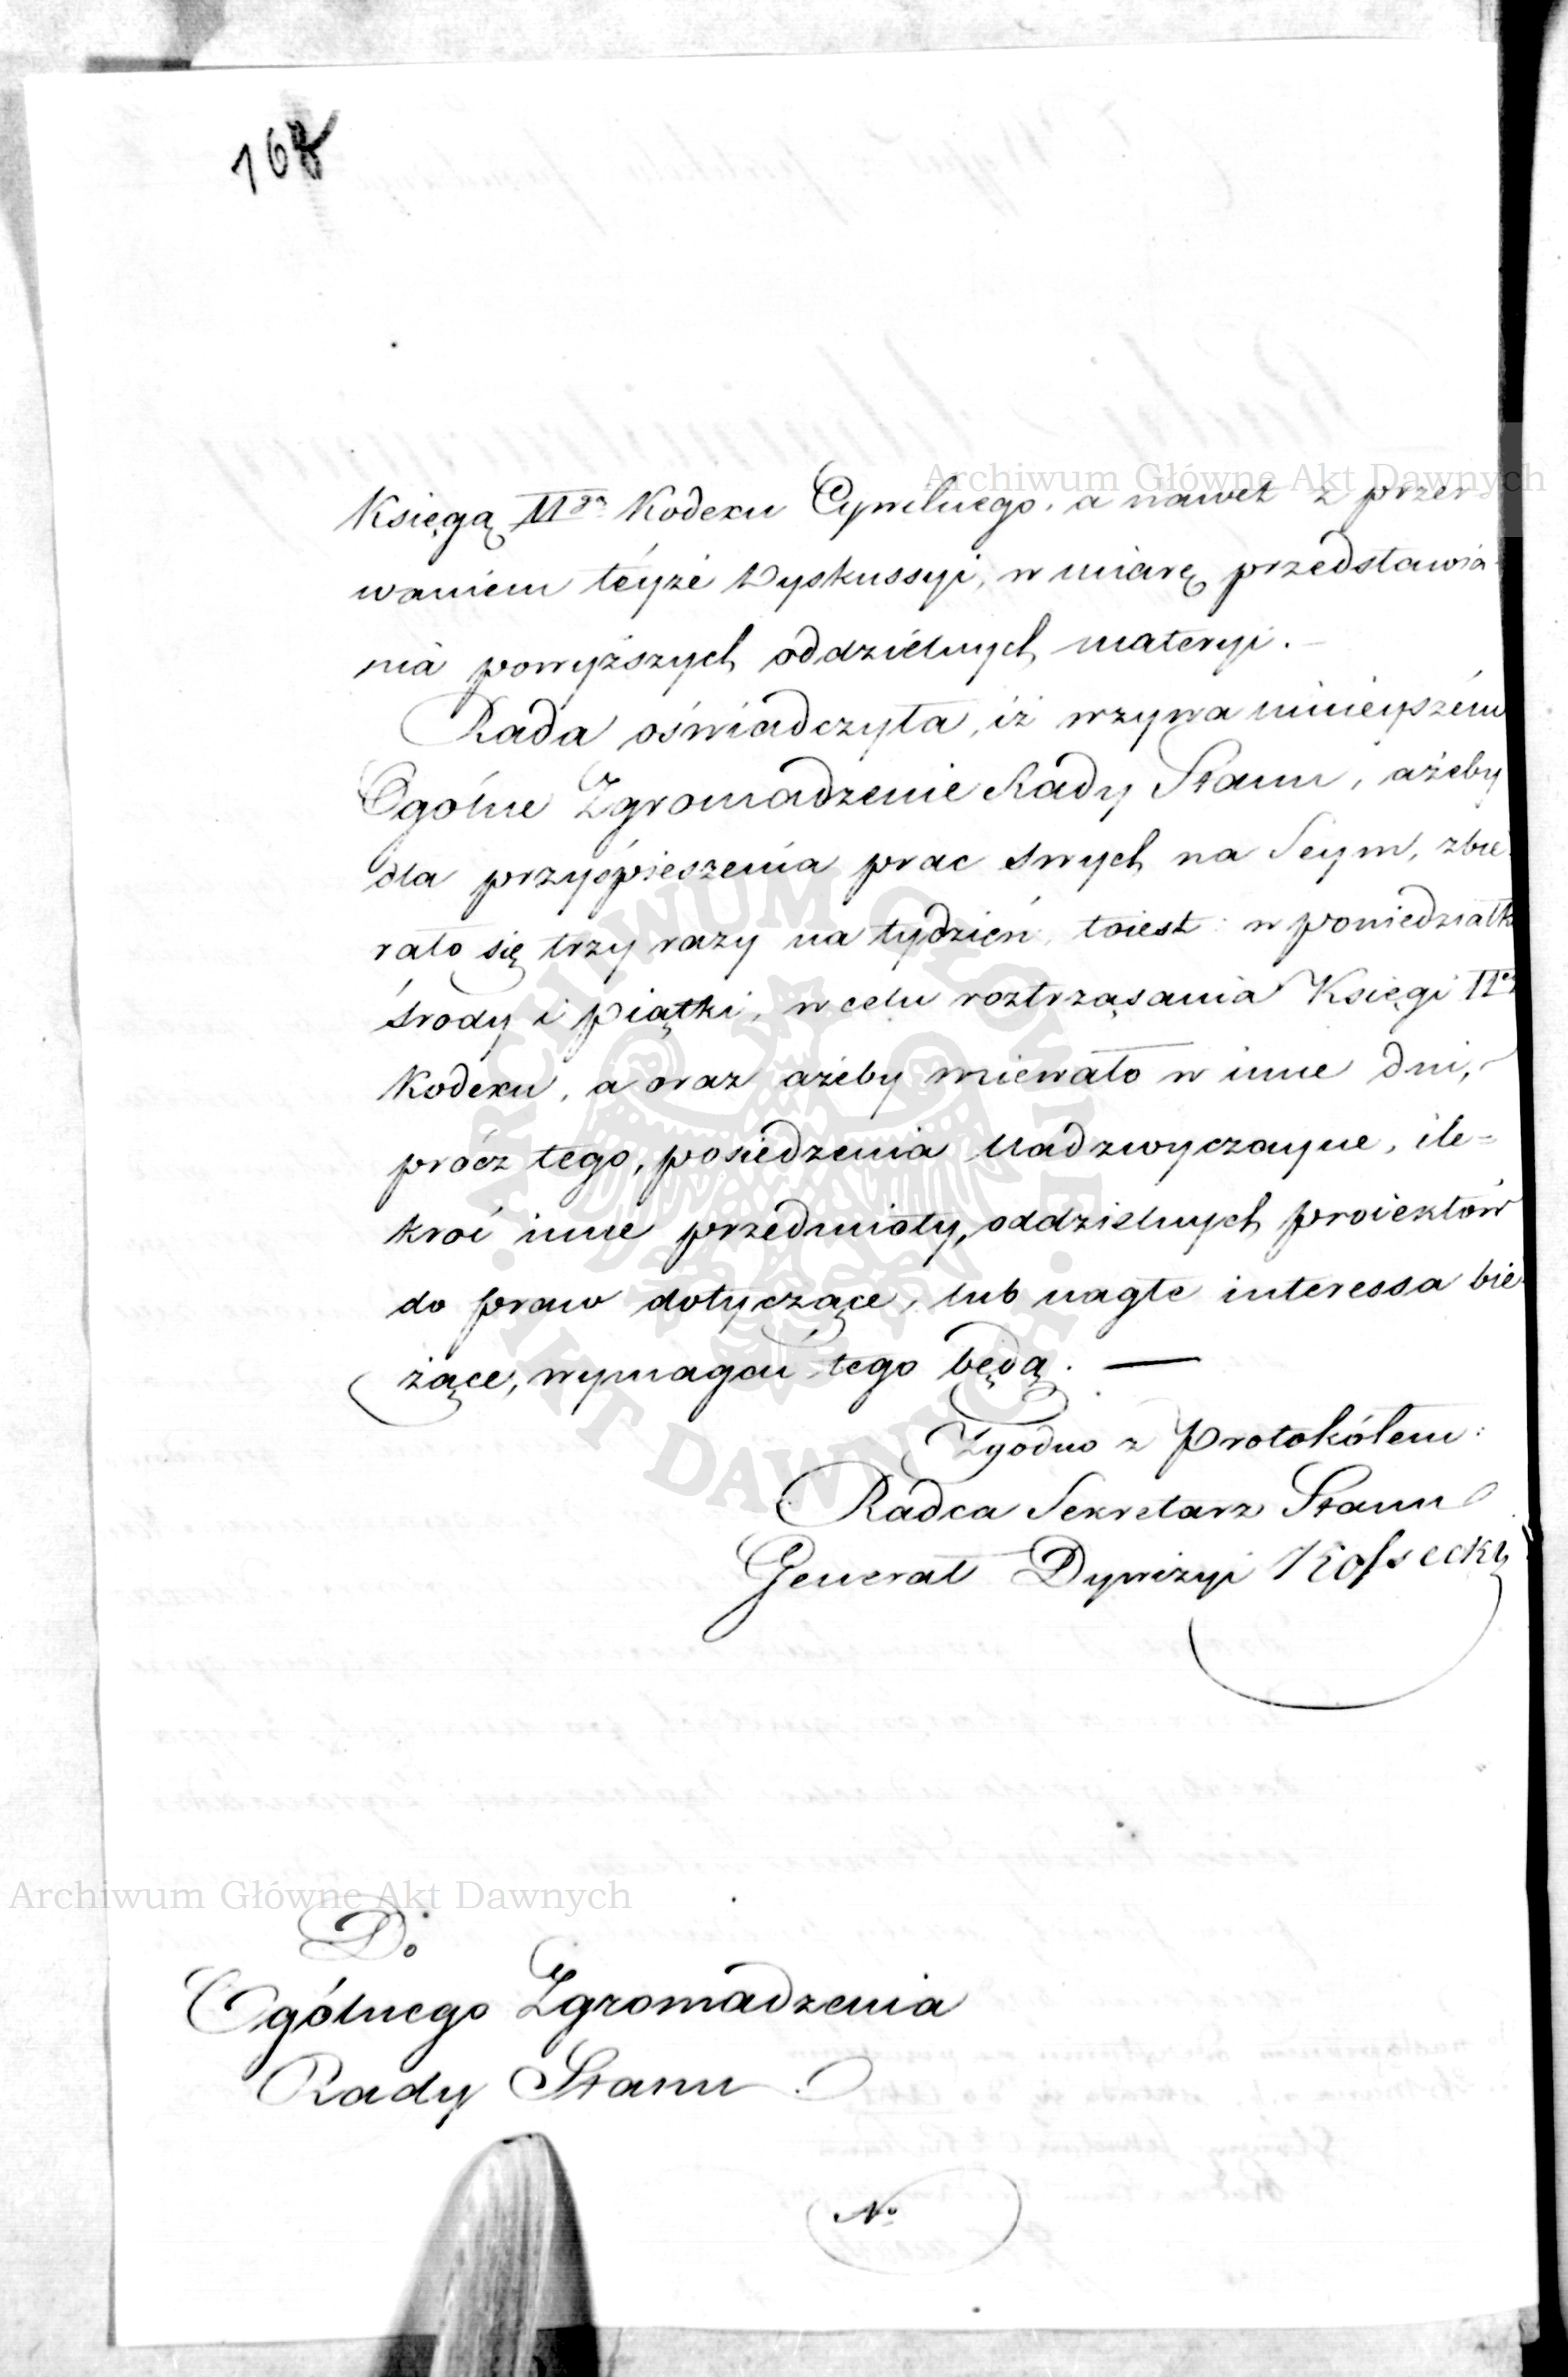 168
Księgą IIgą Kodexu Cywilnego, a nawet z przer-
waniem téyże Dyskussyi, w miarę przedstawia-
nia powyższych oddzielnych materyi.
Rada oświadczyła, iż wzywa ninieyszém
Ogólne Zgromadzenie Rady Stanu, ażeby
dla przyśpieszenia prac swych na Seym, zbie-
rało się trzy razy na tydzień, toiest: w poniedziałk
środy i piątki, w celu roztrząsania Księgi IIéy
Kodexu, a oraz ażeby miewało w inne dni,
prócz tego, posiedzenia nadzwyczayne, ile=
kroć inne przedmioty, oddzielnych proiektów
do praw dotyczące, lub nagłe interessa bie-
żące, wymagać tego będą. —
Zgodno z Protokółem:
Radca Sekretarz Stanu
Generał Dywizyi Kossecki
Do
Ogólnego Zgromadzenia
Rady Stanu.
No
Archiwum Główne Akt Dawnych
Archiwum Główne Akt Dawnych
ARCHIWUM GŁÓWNE • AKT DAWNYCH •